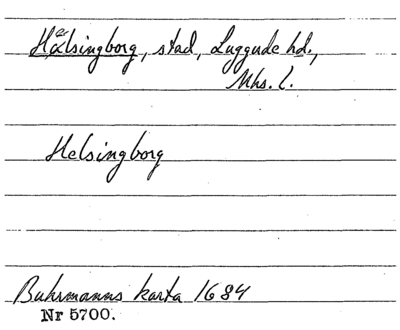 Hälsingborg, stad, Luggude hd.,
Mhs. l.
Helsingborg
Buhrmanns karta 1684
Nr 5700.